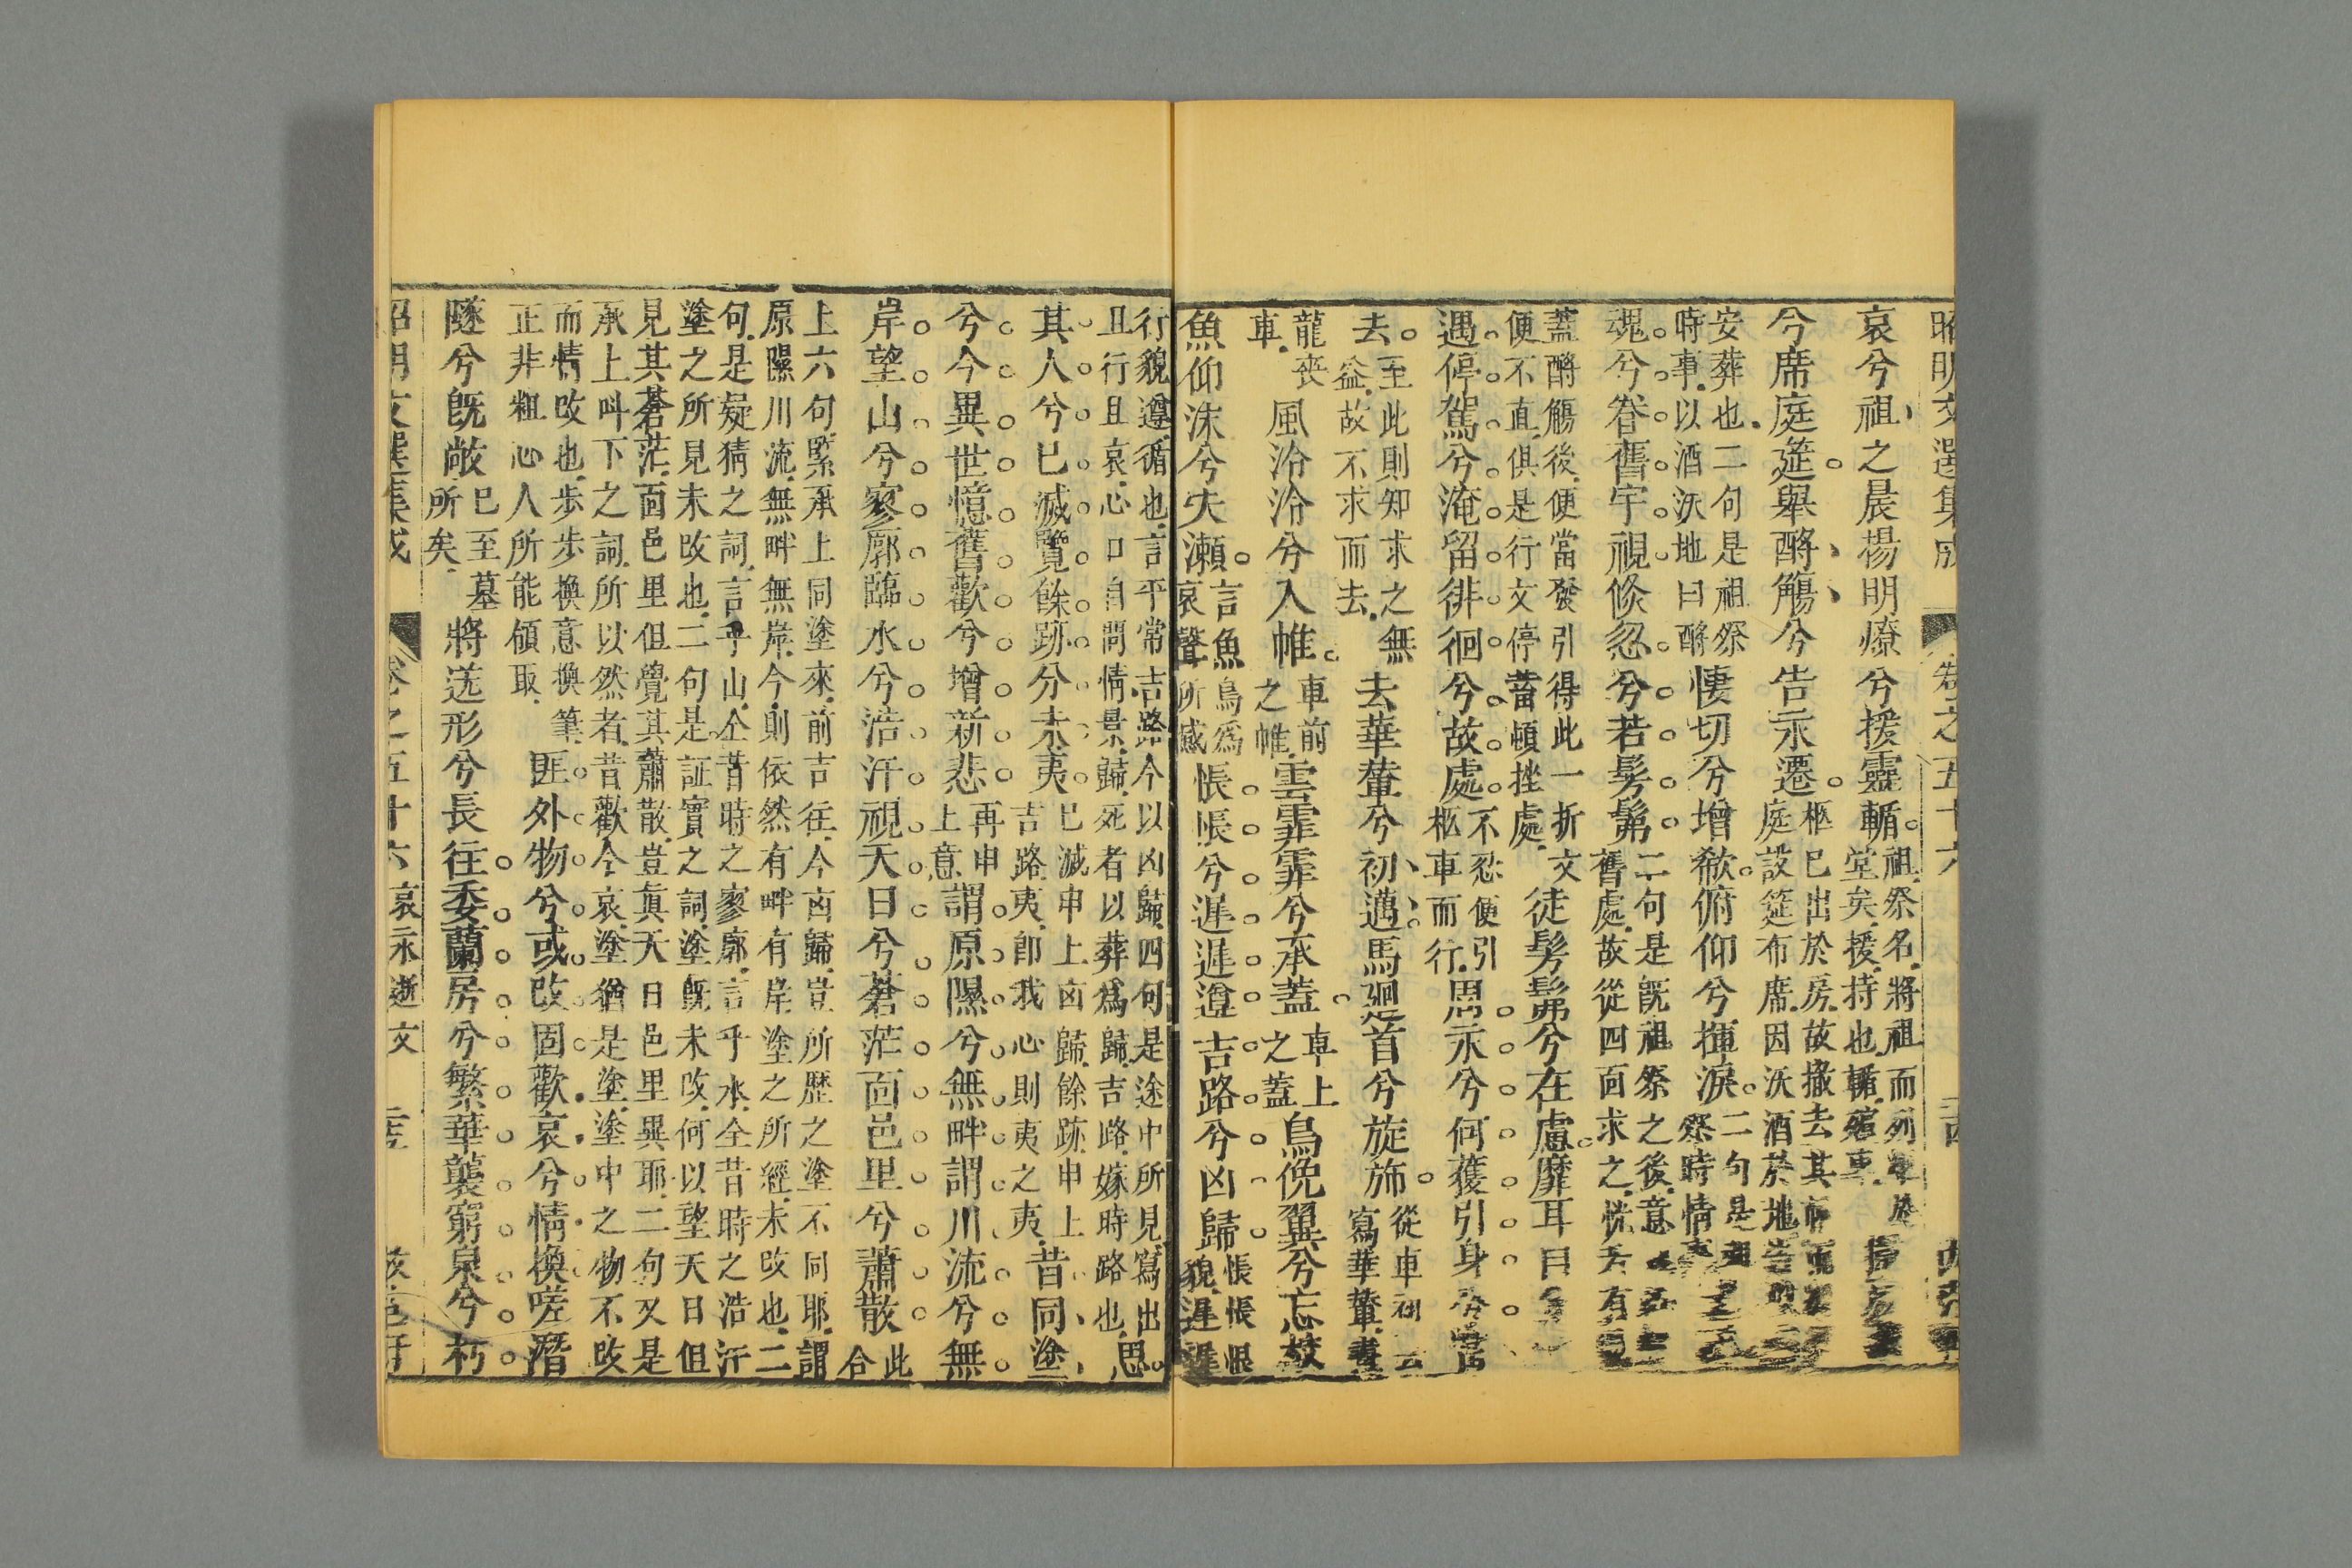 昭明文選集成 卷之五十六
哀兮祖之晨楊明燎兮援靈輴祖祭名將祖而列
堂矣援持也輴殯車
兮席庭筵舉酹觴兮告永遷柩已出於房故撤去其
庭設筵布席因沃酒於地告
安葬也二句是祖祭
時事以酒沃地曰酹悽切兮增欷俯仰兮揮淚二句是
祭時情
魂兮眷舊宇視倐忽兮若髣髴二句是旣祖祭之後意
舊處故從四面求之恍若有
蓋酹觴後便當發引得此一折文
便不直俱是行文停蓄頓挫處徒髣髴兮在慮靡耳目兮
遇停駕兮淹留徘徊兮故處不忍便引
柩車而行周永兮何獲引身兮當
去至此則知求之無
益故不求而去去華輦兮初邁馬廻首兮旋旆從車
寫華輦
龍喪
車風泠泠兮入帷車前
之帷雲霏霏兮承蓋車上
之蓋鳥俛翼兮忘林
魚仰沫兮失瀨言魚鳥爲
哀聲所感悵悵兮遲遲遵吉路兮凶歸悵悵恨
貌遲遲
行貌遵循也言平常吉路今以凶歸四句是途中所見寫出
且行且哀心口自問情景歸死者以葬爲歸吉路嫁時路也思
其人兮已滅覽餘跡兮未夷已滅申上凶歸餘跡申上
吉路夷卽我心則夷之夷昔同塗
兮今異世憶舊歡兮增新悲再申
上意謂原隰兮無畔謂川流兮無
岸望山兮寥廓臨水兮浩汗視天日兮蒼茫面邑里兮蕭散此
合
上六句緊承上同塗來前吉往今凶歸豈所歷之塗不同耶謂
原隰川流無畔無岸今則依然有畔有岸塗之所經未改也二
句是疑猜之詞言乎山仝昔時之寥廓言乎水仝昔時之浩汗
塗之所見未改也二句是証實之詞塗旣未改何以望天日但
見其蒼茫面邑里但覺其蕭散豈眞天日邑里異耶二句又是
承上呌下之詞所以然者昔歡今哀塗猶是塗塗中之物不改
而情改也歩歩換意換筆
正非粗心人所能領取匪外物兮或改固歡哀兮情換嗟潛
隧兮旣敞已至墓
所矣將送形兮長往委蘭房兮繁華襲窮泉兮朽
昭明文選集成 卷之五十六哀永逝文